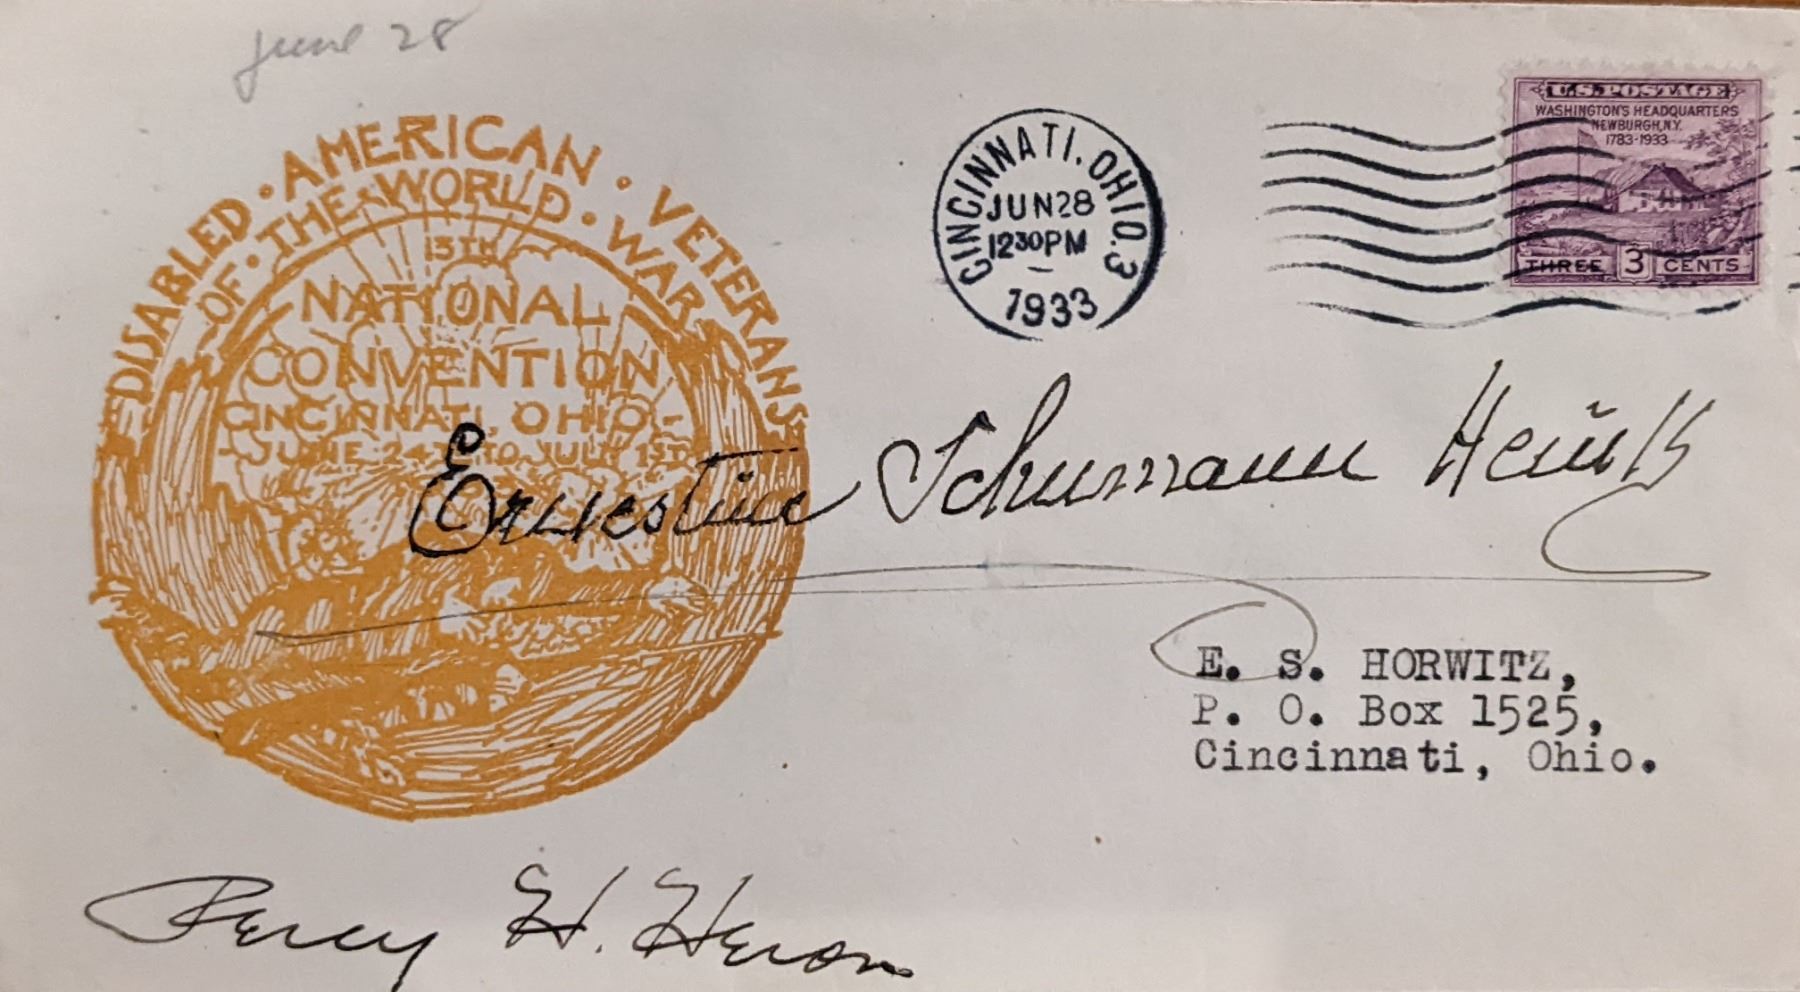 June 28
DISABLED · AMERICAN · VETERANS
· OF · THE · WORLD · WAR ·
13TH
NATIONAL
CONVENTION
CINCINNATI, OHIO -
- JUNE 24TH TO JULY 1ST -
CINCINNATI, OHIO. 3
JUN 28
12 30 PM
1933
U.S. POSTAGE
WASHINGTON'S HEADQUARTERS
NEWBURGH, N.Y.
1783-1933
THREE 3 CENTS
Ernestine Schumann Heink
E. S. HORWITZ,
P. O. Box 1525,
Cincinnati, Ohio.
Percy H. Heron